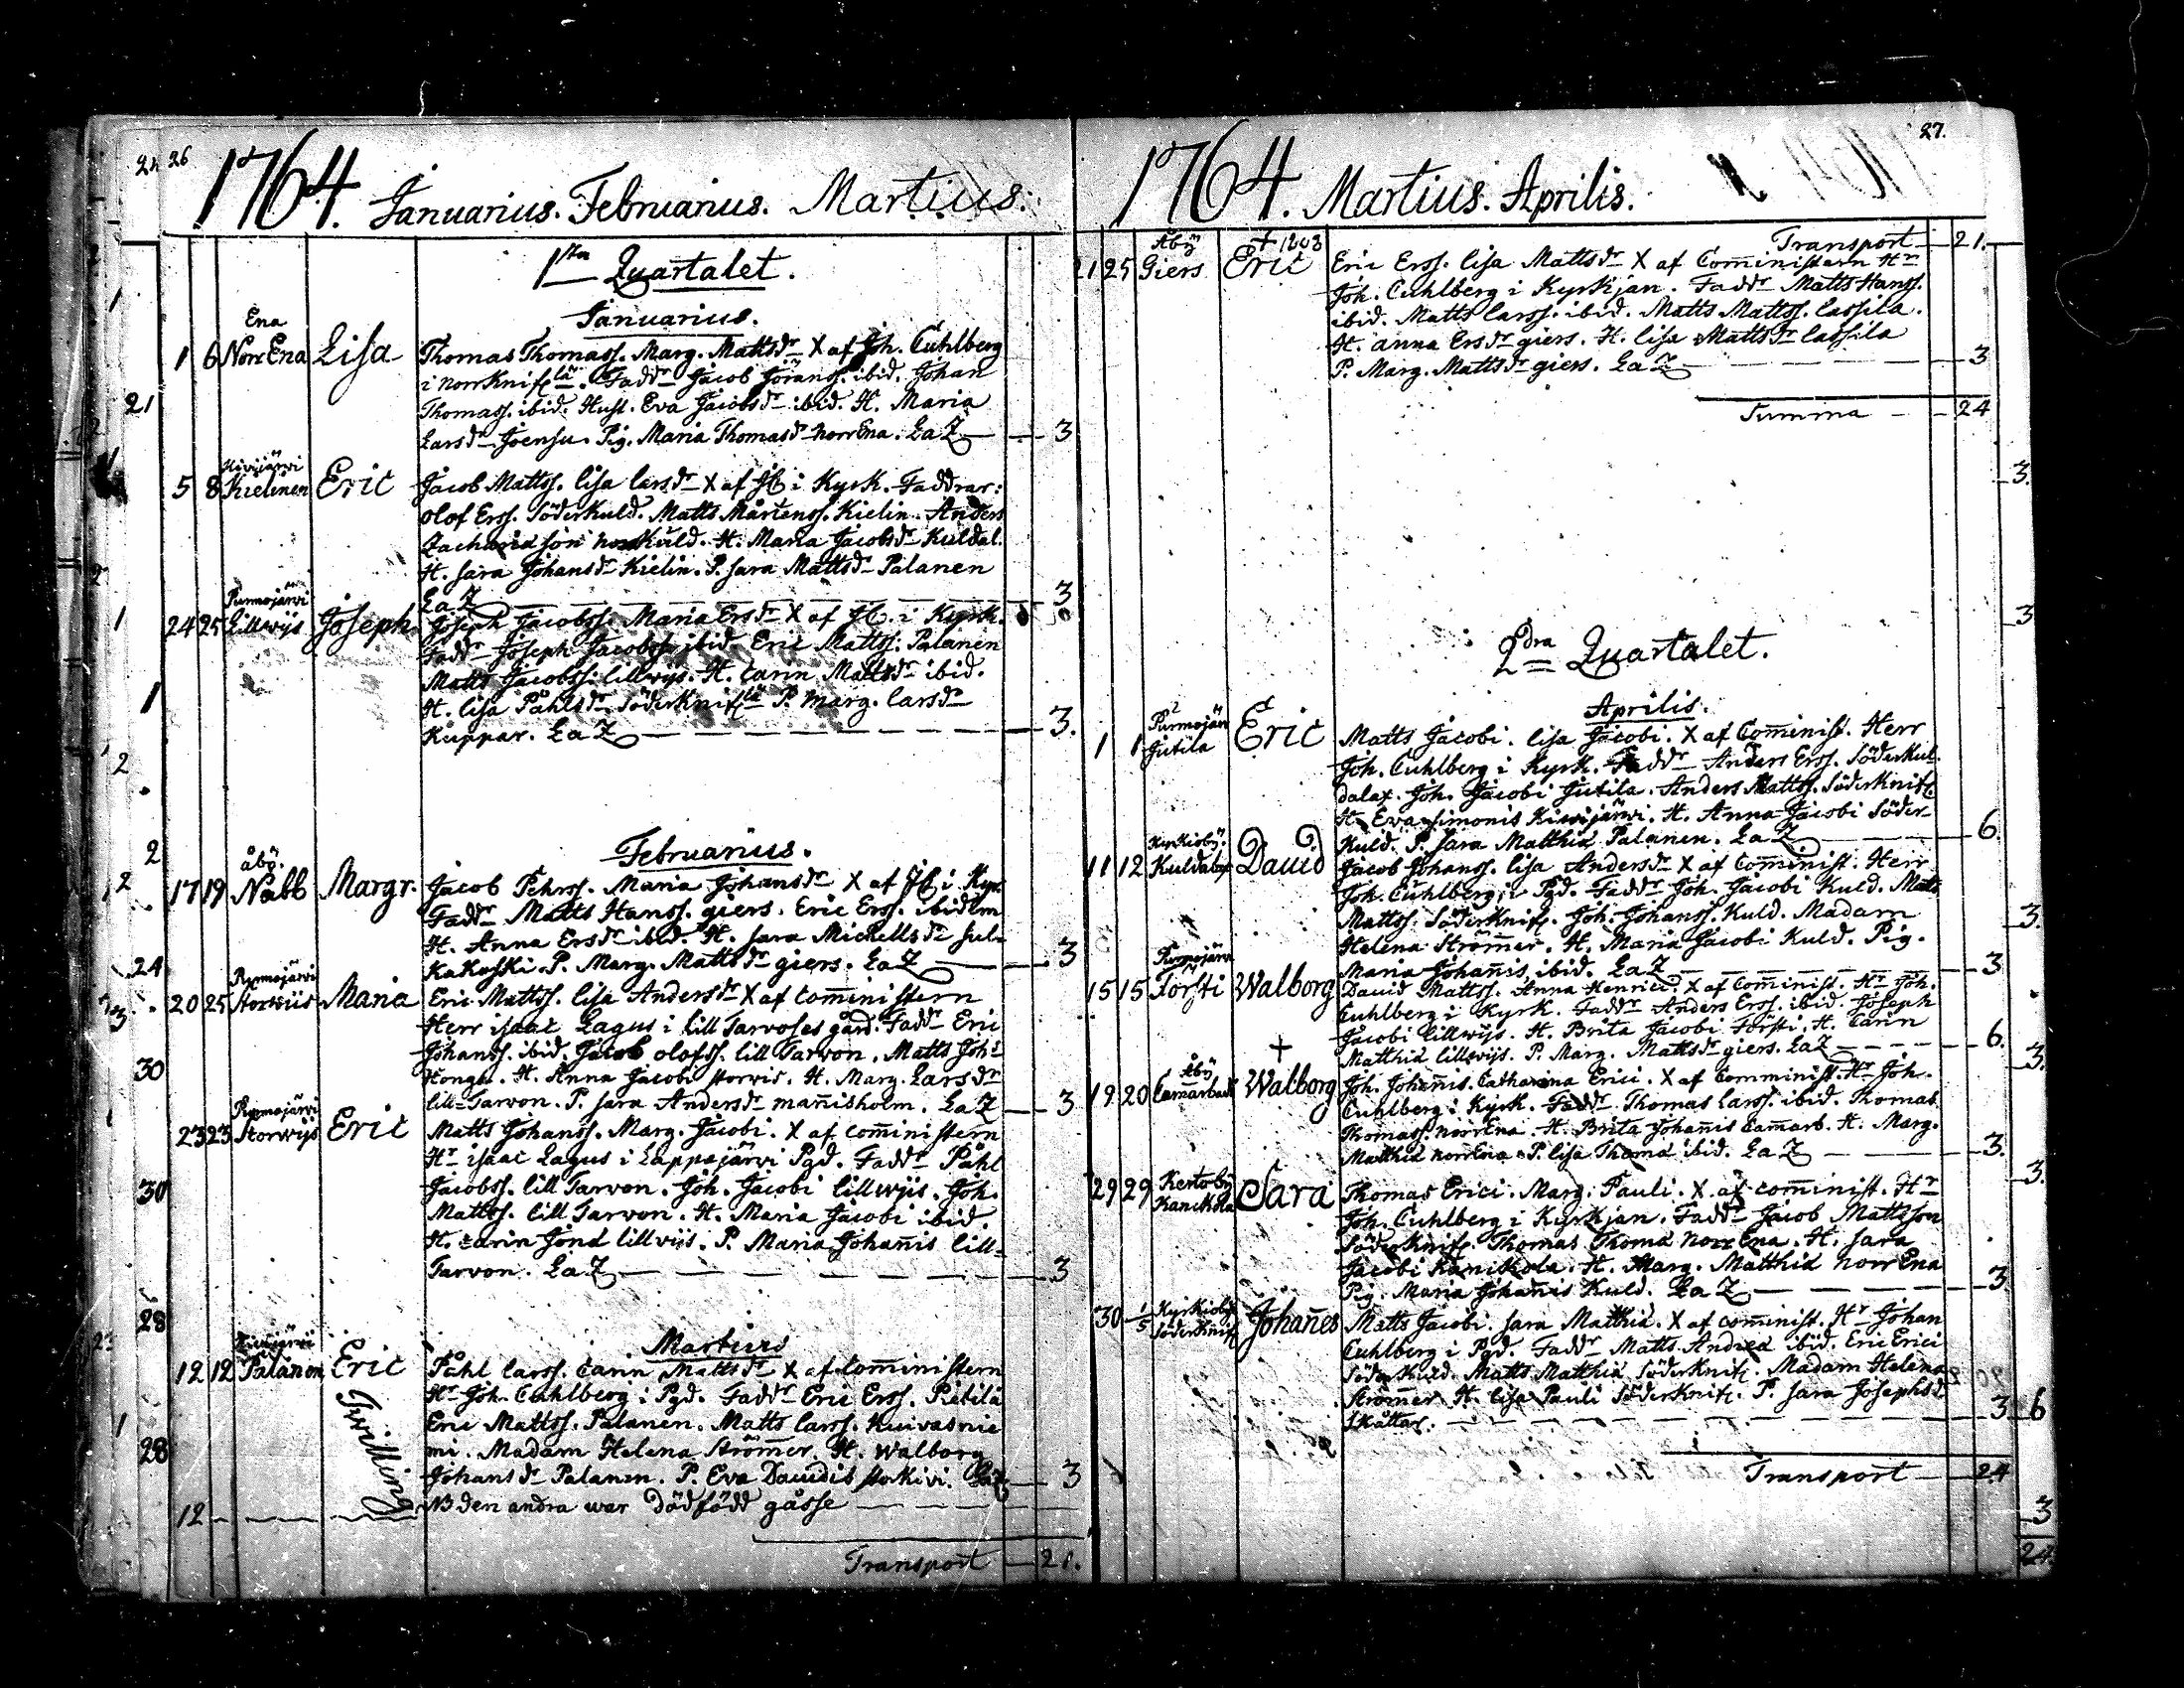 26
1764. Januarius. Februarius. Martius.
1sta Quartalet.
Januarius.
Ena
1 6 Norr Ena Lisa Thomas Thomass. Marg. Mattsdr X af Joh. Cuhlberg
i norrKnif. Faddr Jacob Joranss. ibid. Johan
Thomass. ibid. Hust. Eva Jacobsdr ibid. H. Maria
Larsdr Joensu. Pig. Maria Thomasdr norrEna. LaZ 3
Kivijärvi
5 8 Kielinen Eric Jacob Mattss. lisa larsdr X af JC i Kyrk. Faddrar:
olof Erss. SöderKuld. Matts Mårtenss. Kielin. Anders
Zachariason norrKuld. H. Maria Jacobsdr Kuldal.
H. sara Johansdr Kielin. P. sara Mattsdr Palanen
LaZ 3
Purmojärvi
24 25 Lillwijs Joseph Joseph Jacobss. Maria Ersdr X af JC i Kyrk.
Faddr Joseph Jacobss. ibid. Eric Mattss. Palanen
Matts Jacobss. lillwijs. H. Carin Mattsdr ibid.
H. lisa Påhlsdr SöderKnif P. Marg. larsdr
Kuppar. LaZ 3.
Februarius.
åbÿ.
17 19 Nabb Margr. Jacob Pehrss. Maria Johansdr X af JC i Kyr.
Faddr Matts Hanss. giers. Eric Erss. ibidem
H. Anna Ersdr ibid. H. sara Michellsdr sul=
KaKoski. P. Marg. Mattsdr giers. LaZ 3
Purmojärvi
20 25 Storwiis Maria Eric Mattss. lisa Andersdr X af Comministern
Herr isaac Lagus i lill Tarvoses gård. Faddr Eric
Johanss. ibid. Jacob olofss. lill Tarvon. Matts Joh:
Honga. H. Anna Jacobi storvis. H. Marg. Larsdr
lill=Tarvon. P. sara Andersdr mannisholm. LaZ 3
Purmojärvi
23 23 Storwijs Eric Matts Johanss. Marg. Jacobi. X af comministern
Hr isaac Lagus i Lappajärvi Pgd. Faddr Påhl
Jacobss. lill Tarvon. Joh. Jacobi lillwijs. Joh.
Mattss. lill Tarvon. H. Maria Jacobi ibid.
H. Carin Jona lillviis. P. Maria Johannis lill=
Tarvon. LaZ 3
Martius
Kivijärvi
12 12 Palanen Eric Påhl larss. Carin Mattsdr X af Comministern
Hr Joh. Cuhlberg i Pgd. Faddr Eric Erss. Pietilä
Twilling Eric Mattss. Palanen. Matts larss. Kuivasnie
mi. Madam Helena Strömer. H. Walborg
Johansdr Palanen. P. Eva Davidis storkivi. LaZ 3
12 NB den andra war dödfödd gåsse
Transport 21.
27.
1764. Martius. Aprilis.
Transport 21.
Åbÿ † 1808
21 25 Giers Eric Eric Erss. lisa Mattsdr X af Cominist​ern Hr
Joh. Cuhlberg i Kyrkjan. Faddr Matts Hanss.
ibid. Matts larss. ibid. Matts Mattss. lassila.
H. anna Ersdr giers. H. lisa Mattsdr lassila
P. Marg. Mattsdr giers. LaZ 3
Summa 24
2dra Quartalet.
Aprilis.
Purmojär
1 1 Jutila Eric Matts Jacobi. lisa Jacobi. X af Cominist. Herr
Joh. Cuhlberg i Kyrk. Faddr Anders Erss. SöderKul
dalax. Joh. Jacobi Jutila. Anders Mattss. SöderKnif.
H. Eva simonis Kivijärvi. H. Anna Jacobi Söder-
Kuld. P. sara Matthiæ Palanen. LaZ 6.
Kyrkioby.
11 12 Kuldalax David Jacob Johanss. lisa Andersdr X af Cominist. Herr
Joh. Cuhlberg i Pgd. Faddr Joh. Jacobi Kuld. Matts
Mattss. SöderKnif. Joh. Johanss. Kuld. Madam
Helena Strömer. H. Maria Jacobi Kuld. Pig.
Maria Johannis ibid. LaZ 3
Purmojärvi
15 15 Försti Walborg David Mattss. Anna Henrici. X af Cominist. Hr Joh.
Cuhlberg i Kyrk. Faddr Anders Erss. ibid. Joseph
Jacobi lillwijs. H. Brita Jacobi Försti. H. Carin
Matthiæ lillwijs. P. Marg. Mattsdr giers. LaZ 6.
Åbÿ †
19 20 Camarback Walborg Joh. Johannis. Catharina Erici. X af Comminist. Hr Joh.
Cuhlberg i Kyrk. Faddr Thomas larss. ibid. Thomas
Thomass. norrEna. H. Brita Johannis Camarb. H. Marg.
Matthiæ norrEna. P. lisa Thomæ ibid. LaZ 3.
Kertoby
29 29 Kanikola Sara Thomas Erici. Marg. Pauli. X af cominist. Hr
Joh. Cuhlberg i Kyrkjan. Faddr Jacob Mattsson
SöderKnif. Thomas Thomæ Norr Ena. H. sara
Jacobi Kanikola. H. Marg. Matthiæ norr Ena
Pig. Maria Johannis Kuld. LaZ 3
Kyrkioby
30 1/5 SöderKnif Johanes Matts Jacobi. sara Matthiæ. X af cominist. Hr Johan
Cuhlberg i Pgd. Faddr Matts Andreæ ibid. Eric Erici
SöderKuld. Matts Matthiæ SöderKnif. Madam Helena
Strömer. H. lisa Pauli SöderKnif. P. sara Josephsdr
Skåttar. 3
Transport 24